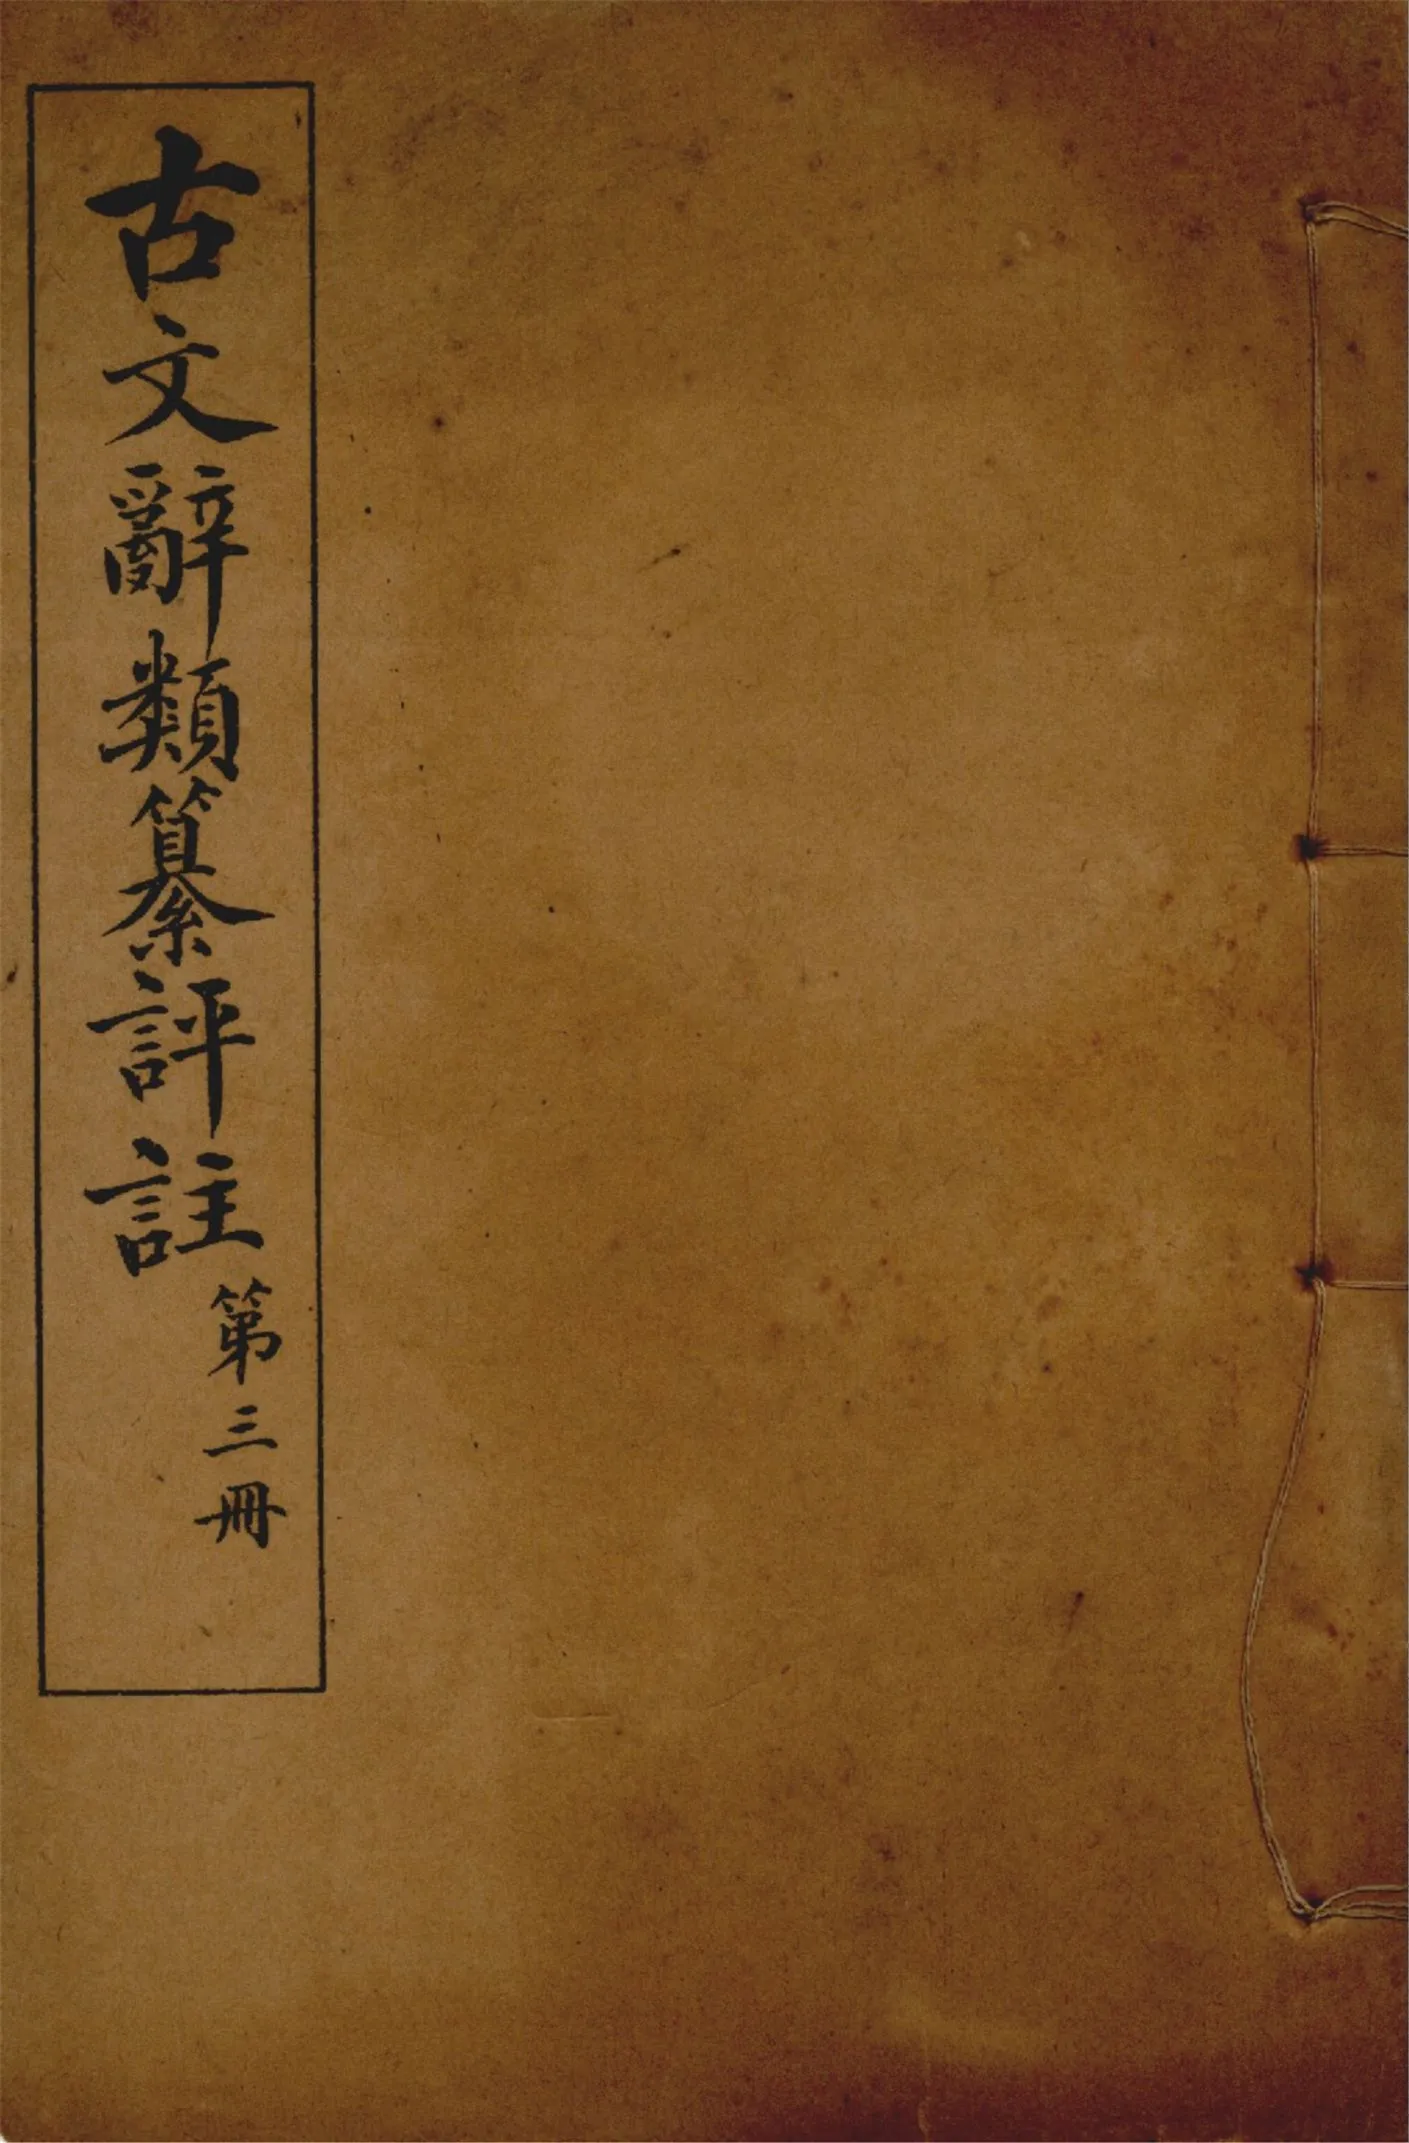 古文辭類纂評註
第三冊